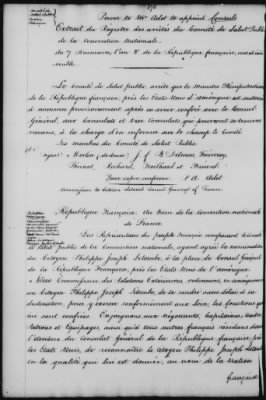 170
Power to Mr Adet to appoint Consuls
Extrait du Registre des arrêtés du Comité de Salut Public
de la Convention Nationale.
du 7 Brumaire, l'an 3e de la République française, une et indi-
visible
Le Comité de Salut public, arrête que le Ministre Plénipotentiaire
de la République française, près les Etats Unis d'Amérique est autorisé
à nommer provisoirement après s'en être concerté avec le Consul
Général, aux Consulats et Vice Consulats qui pourront se trouver
vacans, à la charge d'en informer sur le champ le Comité.
Les membres du Comité de Salut Public
Signé: Merlin (de douai) J. f. B. Delmas, Fourcroy,
Thuriot, Richard,
Pour copie conforme P. A. Adet
Commission to Citizen Letombe Consul General of France
République Française. Au Nom de la Convention nationale
de France
Les Représentans du Peuple Français composant le Comité
de Salut Public de la Convention nationale, ayant agréé la nomination
du Citoyen Philippe Joseph Letombe, à la place de Consul Général
de la République Française, près les Etats Unis de l'Amérique
Notre Commissaire des Relations Extérieures, ordonnons, en conséquence
au Citoyen Philippe Joseph Letombe, de se rendre sans délai à sa
destination, pour y exercer conformément aux Loix, les fonctions qui
lui sont confiées. Enjoignons aux négocians, Capitaines, Maîtres
Patrons et Equipages, ainsi qu'à tous autres français résidans dans
l'étendue du Consulat Général de la République française, près
les Etats Unis, de reconnaître le Citoyen Philippe Joseph Letombe
en la qualité qui lui est donnée, au nom de la nation
française